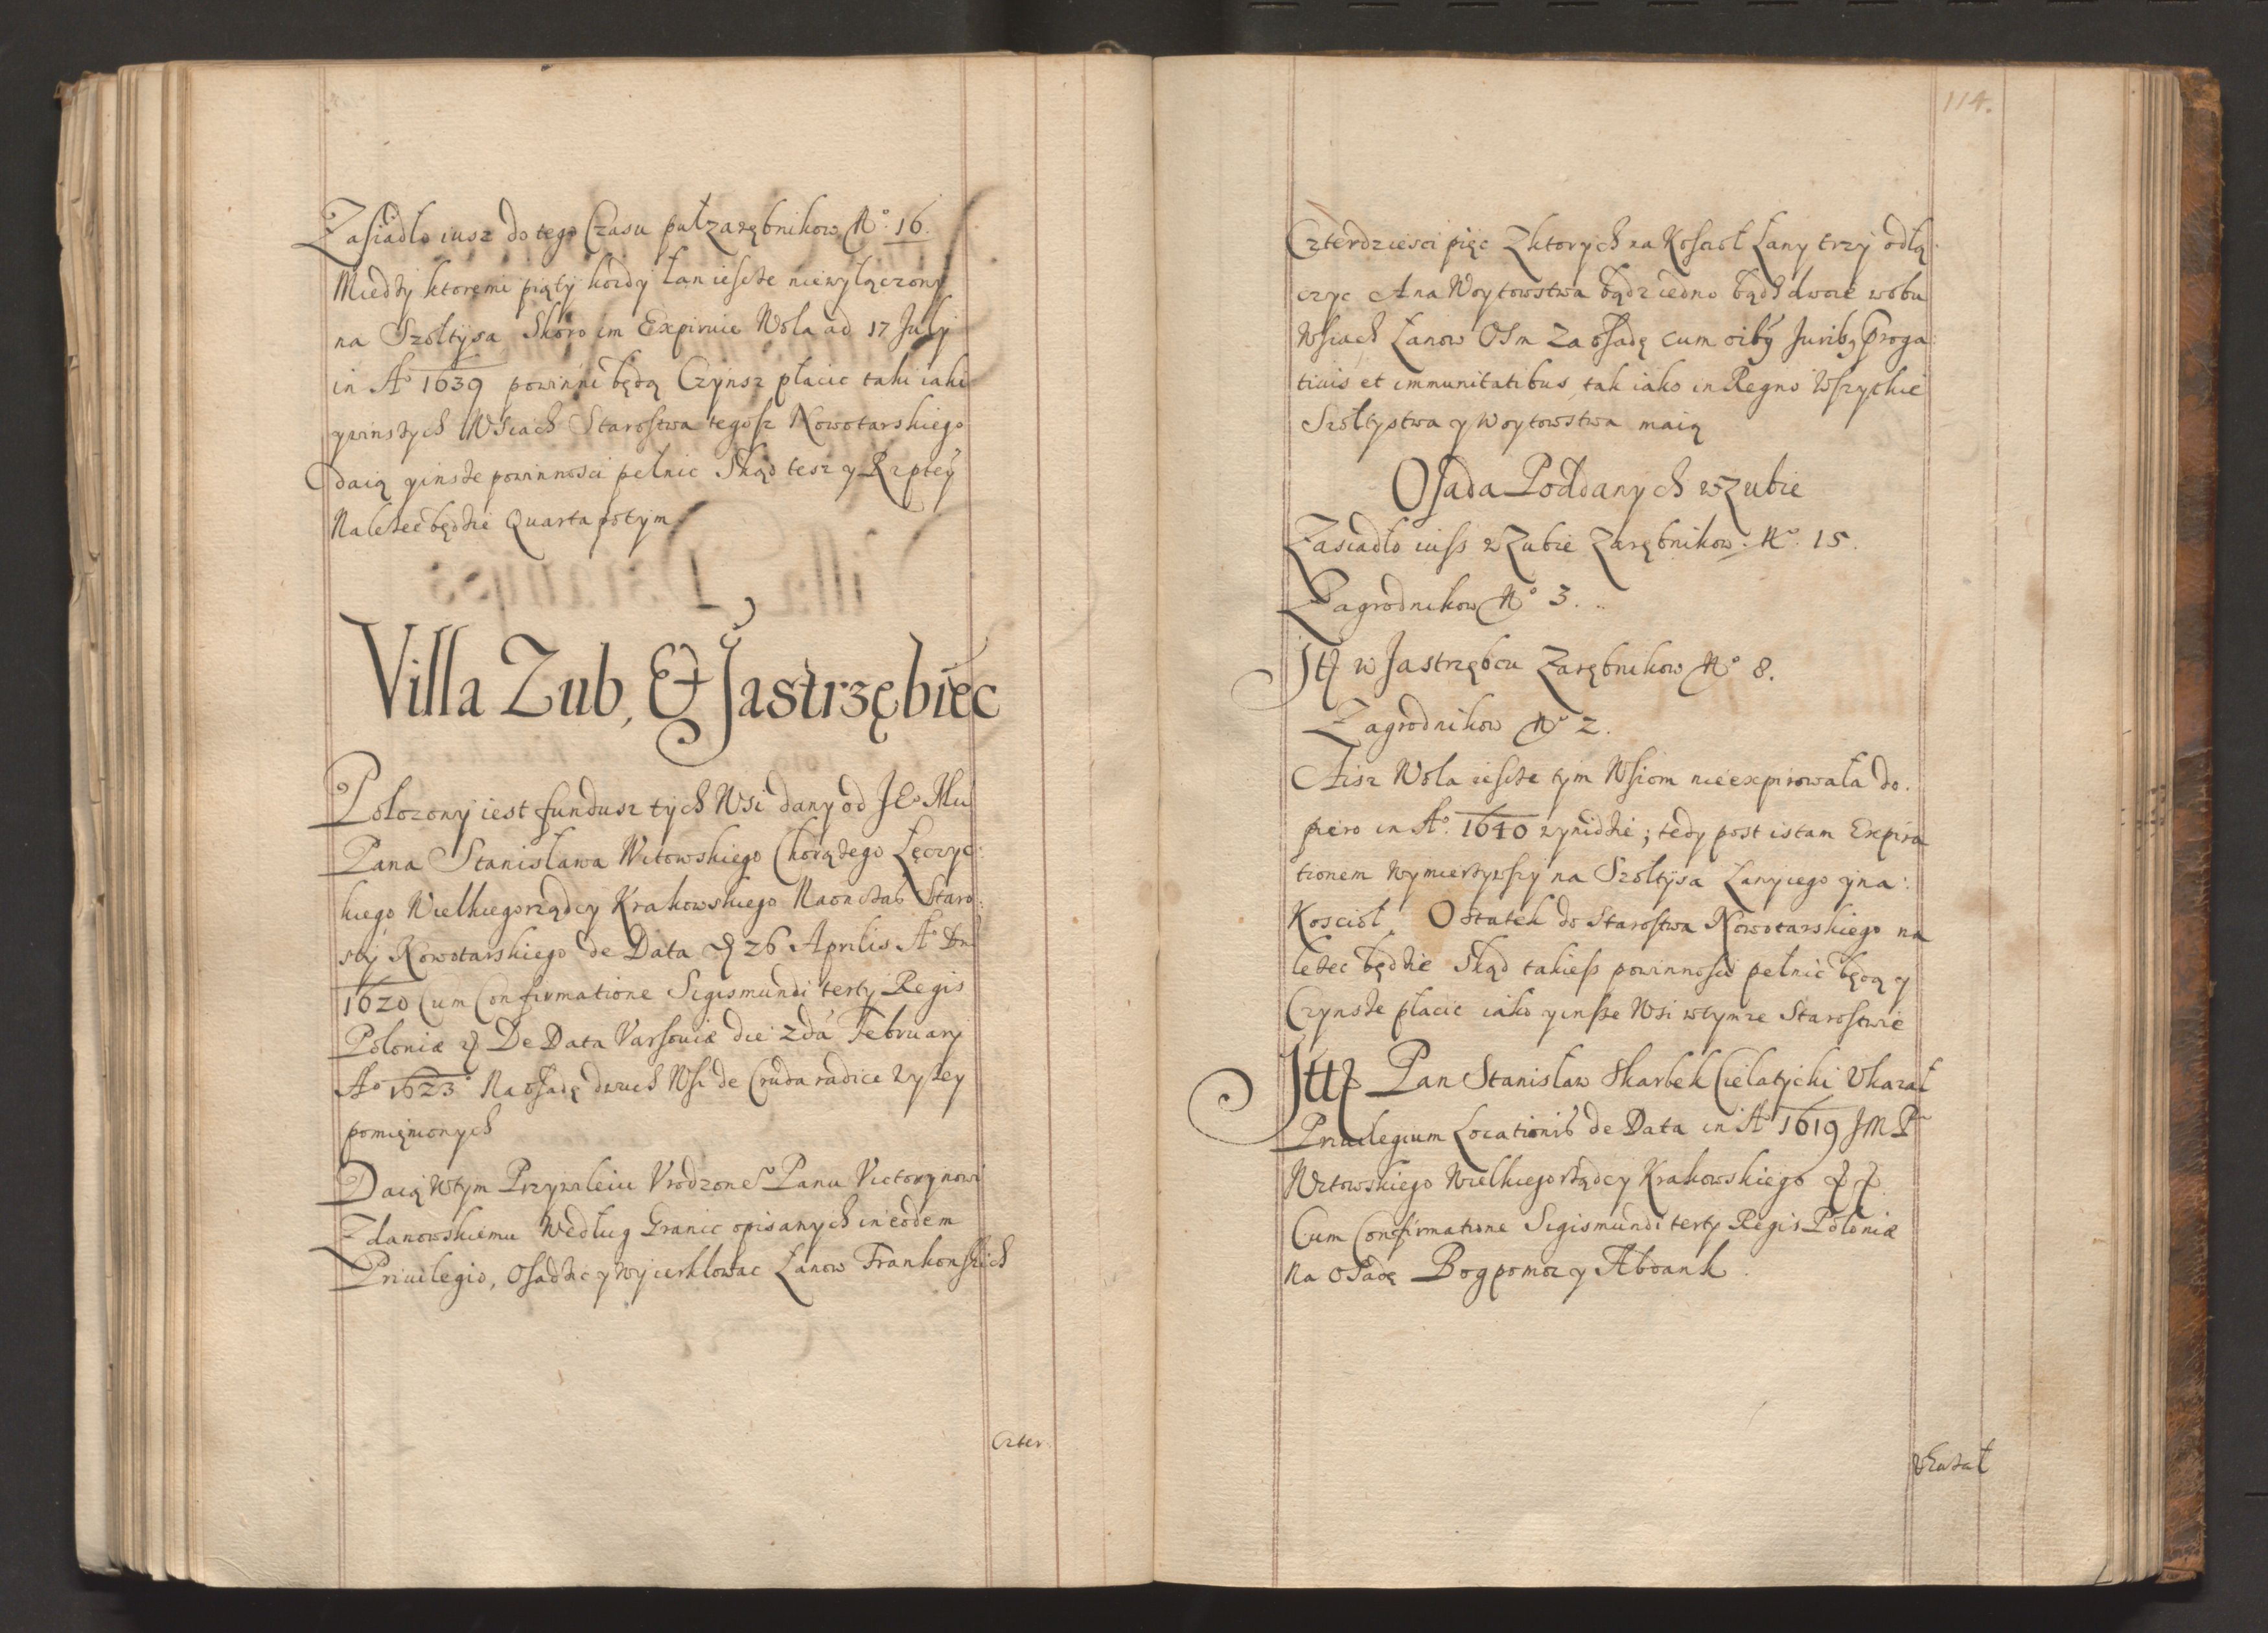 Zasiadło iusz do tego Czasu pułzarębnikow No: 16.
Miedzy ktoremi piąty kozdy łan iescze niewyłączony
na Szołtysa Skoro im Expiruie Wola ad 17 Julij
in Ao 1639 powinni będą Czynsz płacic taki iaki
ywinszych Wsiach Starostwa tegosz Nowotarskiego
daią yinsze powinnosci pełnic Skąd tesz y Rzptey
Nalezec będzie Quarta potym.
Villa Zub, Et Jastrzębiec
Połozony iest fundusz tych Wsi dany od Je° Mci
Pana Stanisława Witowskiego Chorązego Łęczyc:
kiego Wielkiegorządcy Krakowskiego Naonczas Staro:
sty Nowotarskiego de Data 26 Aprilis Ao Dni
1620 Cum Confirmatione Sigismundi tertij Regis
Poloniæ De Data Varsouiæ die 2da Februarij
Ao 1623 Na osadę dwuch Wsi de Cruda radice Wyzey
pomięnionych
Daią Wtym Przywileiu Vrodzone° Panu Victorynowi
Zdanowskiemu Według Granic opisanych in eodem
Priuilegio, Osadzic y Wycerklowac Łanow Frankonskich
Czter
114.
Czterdziesci pięc Zktorych na Koscioł Łany trzy odłą:
czyc A na Woytowstwa bądz iedno bądz dwoie wobu
Wsiach Łanow Osm Za osadę cum oibq Juribq Proga:
tiuis et immunitatibus, tak iako in Regno Wszytkie
Szołtystwa y Woytowstwa maią
Osada Poddanych w Zubie
Zasiadło iuss w Zubie Zarębnikow. No: 15.
Zagrodnikow No 3.
Jt w Jastrzębcu Zarębnikow No 8.
Zagrodnikow No 2.
Aisz Wola iescze tym Wsiom nieexpirowała do.
piero in Ao. 1640 wynidzie; tedy post istam Expira
tionem Wymierzywszy na Szołtysa Łanyiego yna:
Koscioł, Ostatek do Starostwa Nowotarskiego na
lezec będzie Skąd takiess powinnosci pełnic będą y
Czynsze płacic iako yinsze Wsi wtymze Starostwie
Jtt Pan Stanisław Skarbek Cielatycki Vkazał
Priuilegium Locationis de Data in Ao 1619 JM P
Witowskiego Wielkiegorządcy Krakowskiego
Cum Confirmatione Sigismundi tertij Regis Poloniæ
Na osadę Bogpomoz y Abdank.
Vkazał